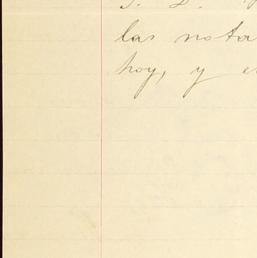 las nota
hoy, y e